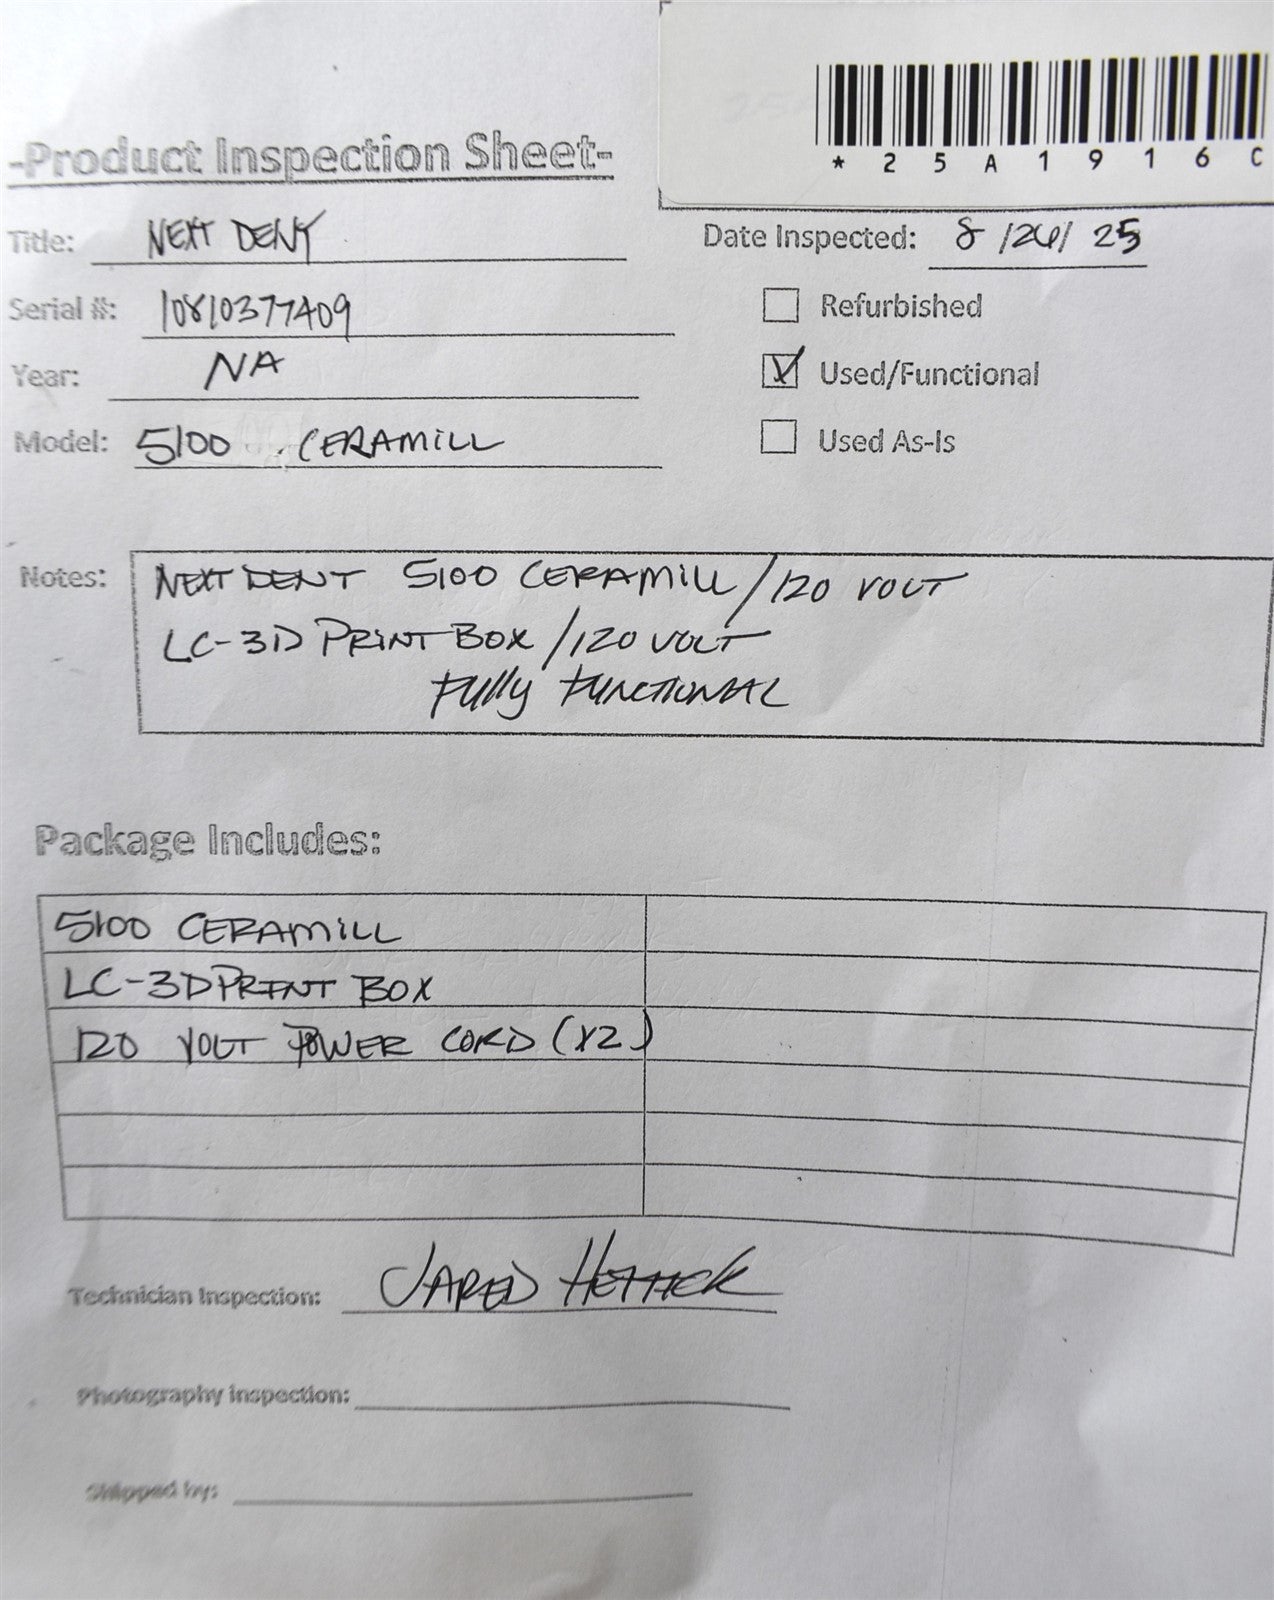 *25A1916C
-Product Inspection Sheet-
Title: NEXT DENT
Date Inspected: 8/26/25
Serial #: 10810377409
Refurbished
Year: NA
Used/Functional
Model: 5100 CERAMILL
Used As-Is
Notes: NEXT DENT 5100 CERAMILL/120 VOLT
LC-3D PRINT BOX/120 VOLT
FUlly FUNCTIONAL
Package Includes:
5100 CERAMILL
LC-3D PRINT BOX
120 VOLT POWER CORD (X2)
Technician Inspection: JARED HETTICK
Photography Inspection:
Shipped by: